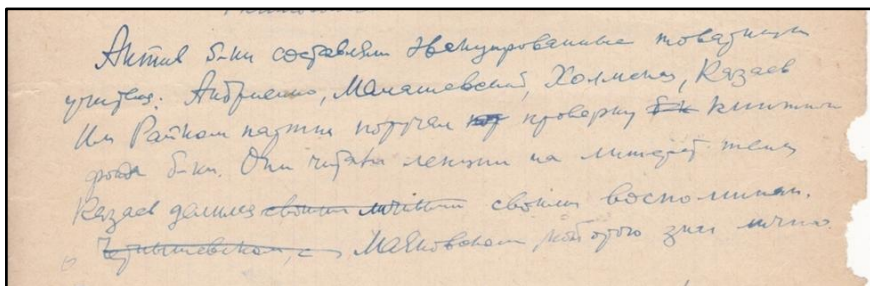 Актив б-ки составляли эвакуированные товарищи
учителя: Андриенко, Малашевский, Холмский, Казаев
Им Райком партии поручал проверку книжн
фонда б-ки. Они читали лекции на литерат. темы
Казаев делился своими воспоминан.
о Маяковском которого знал лично.